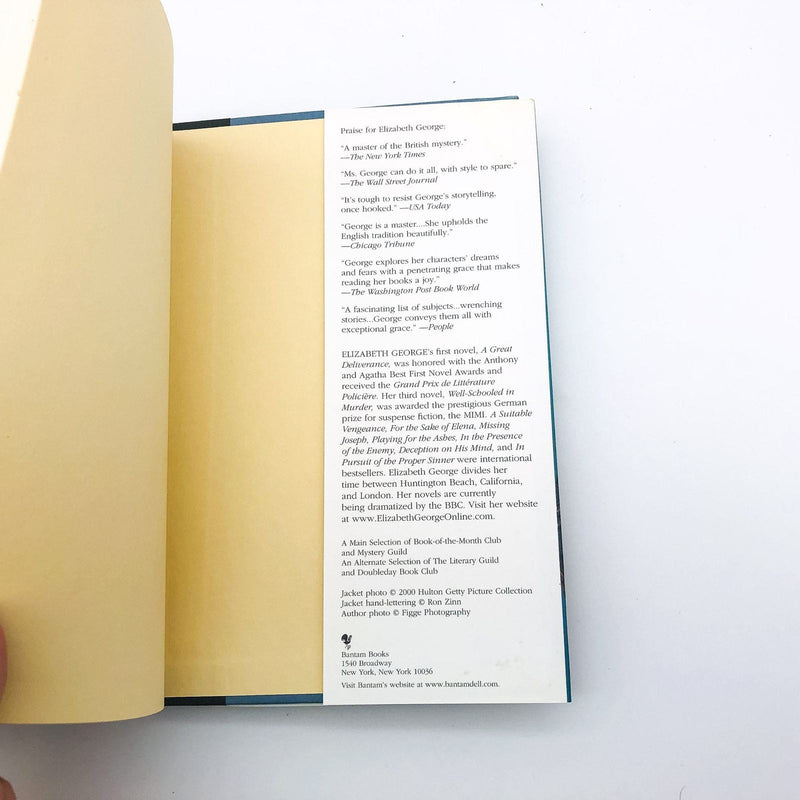 Praise for Elizabeth George:
"A master of the British mystery."
—The New York Times
"Ms. George can do it all, with style to spare."
—The Wall Street Journal
"It's tough to resist George's storytelling,
once hooked." —USA Today
"George is a master....She upholds the
English tradition beautifully."
—Chicago Tribune
"George explores her characters' dreams
and fears with a penetrating grace that makes
reading her books a joy."
—The Washington Post Book World
"A fascinating list of subjects...wrenching
stories...George conveys them all with
exceptional grace." —People
ELIZABETH GEORGE's first novel, A Great
Deliverance, was honored with the Anthony
and Agatha Best First Novel Awards and
received the Grand Prix de Littérature
Policière. Her third novel, Well-Schooled in
Murder, was awarded the prestigious German
prize for suspense fiction, the MIMI. A Suitable
Vengeance, For the Sake of Elena, Missing
Joseph, Playing for the Ashes, In the Presence
of the Enemy, Deception on His Mind, and In
Pursuit of the Proper Sinner were international
bestsellers. Elizabeth George divides her
time between Huntington Beach, California,
and London. Her novels are currently
being dramatized by the BBC. Visit her website
at www.ElizabethGeorgeOnline.com.
A Main Selection of Book-of-the-Month Club
and Mystery Guild
An Alternate Selection of The Literary Guild
and Doubleday Book Club
Jacket photo © 2000 Hulton Getty Picture Collection
Jacket hand-lettering © Ron Zinn
Author photo © Figge Photography
Bantam Books
1540 Broadway
New York, New York 10036
Visit Bantam's website at www.bantamdell.com.